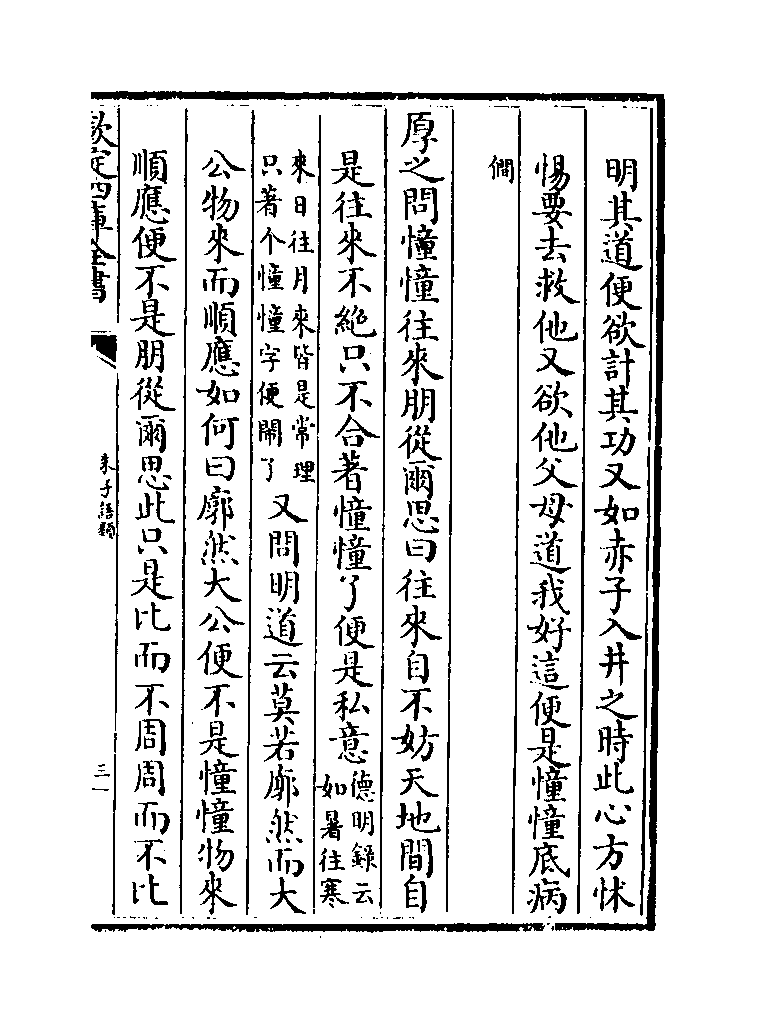 明其道便欲計其功又如赤子入井之時此心方怵
惕要去救他又欲他父母道我好這便是憧憧底病
僩
厚之問憧憧往來朋從爾思曰往來自不妨天地間自
是往來不絶只不合著憧憧了便是私意德明録云如暑往寒
來日往月來皆是常理只著个憧憧字便閙了又問明道云莫若廓然而大
公物來而順應如何曰廓然大公便不是憧憧物來
順應便不是朋從爾思此只是比而不周周而不比
欽定四庫全書
朱子語類
三一